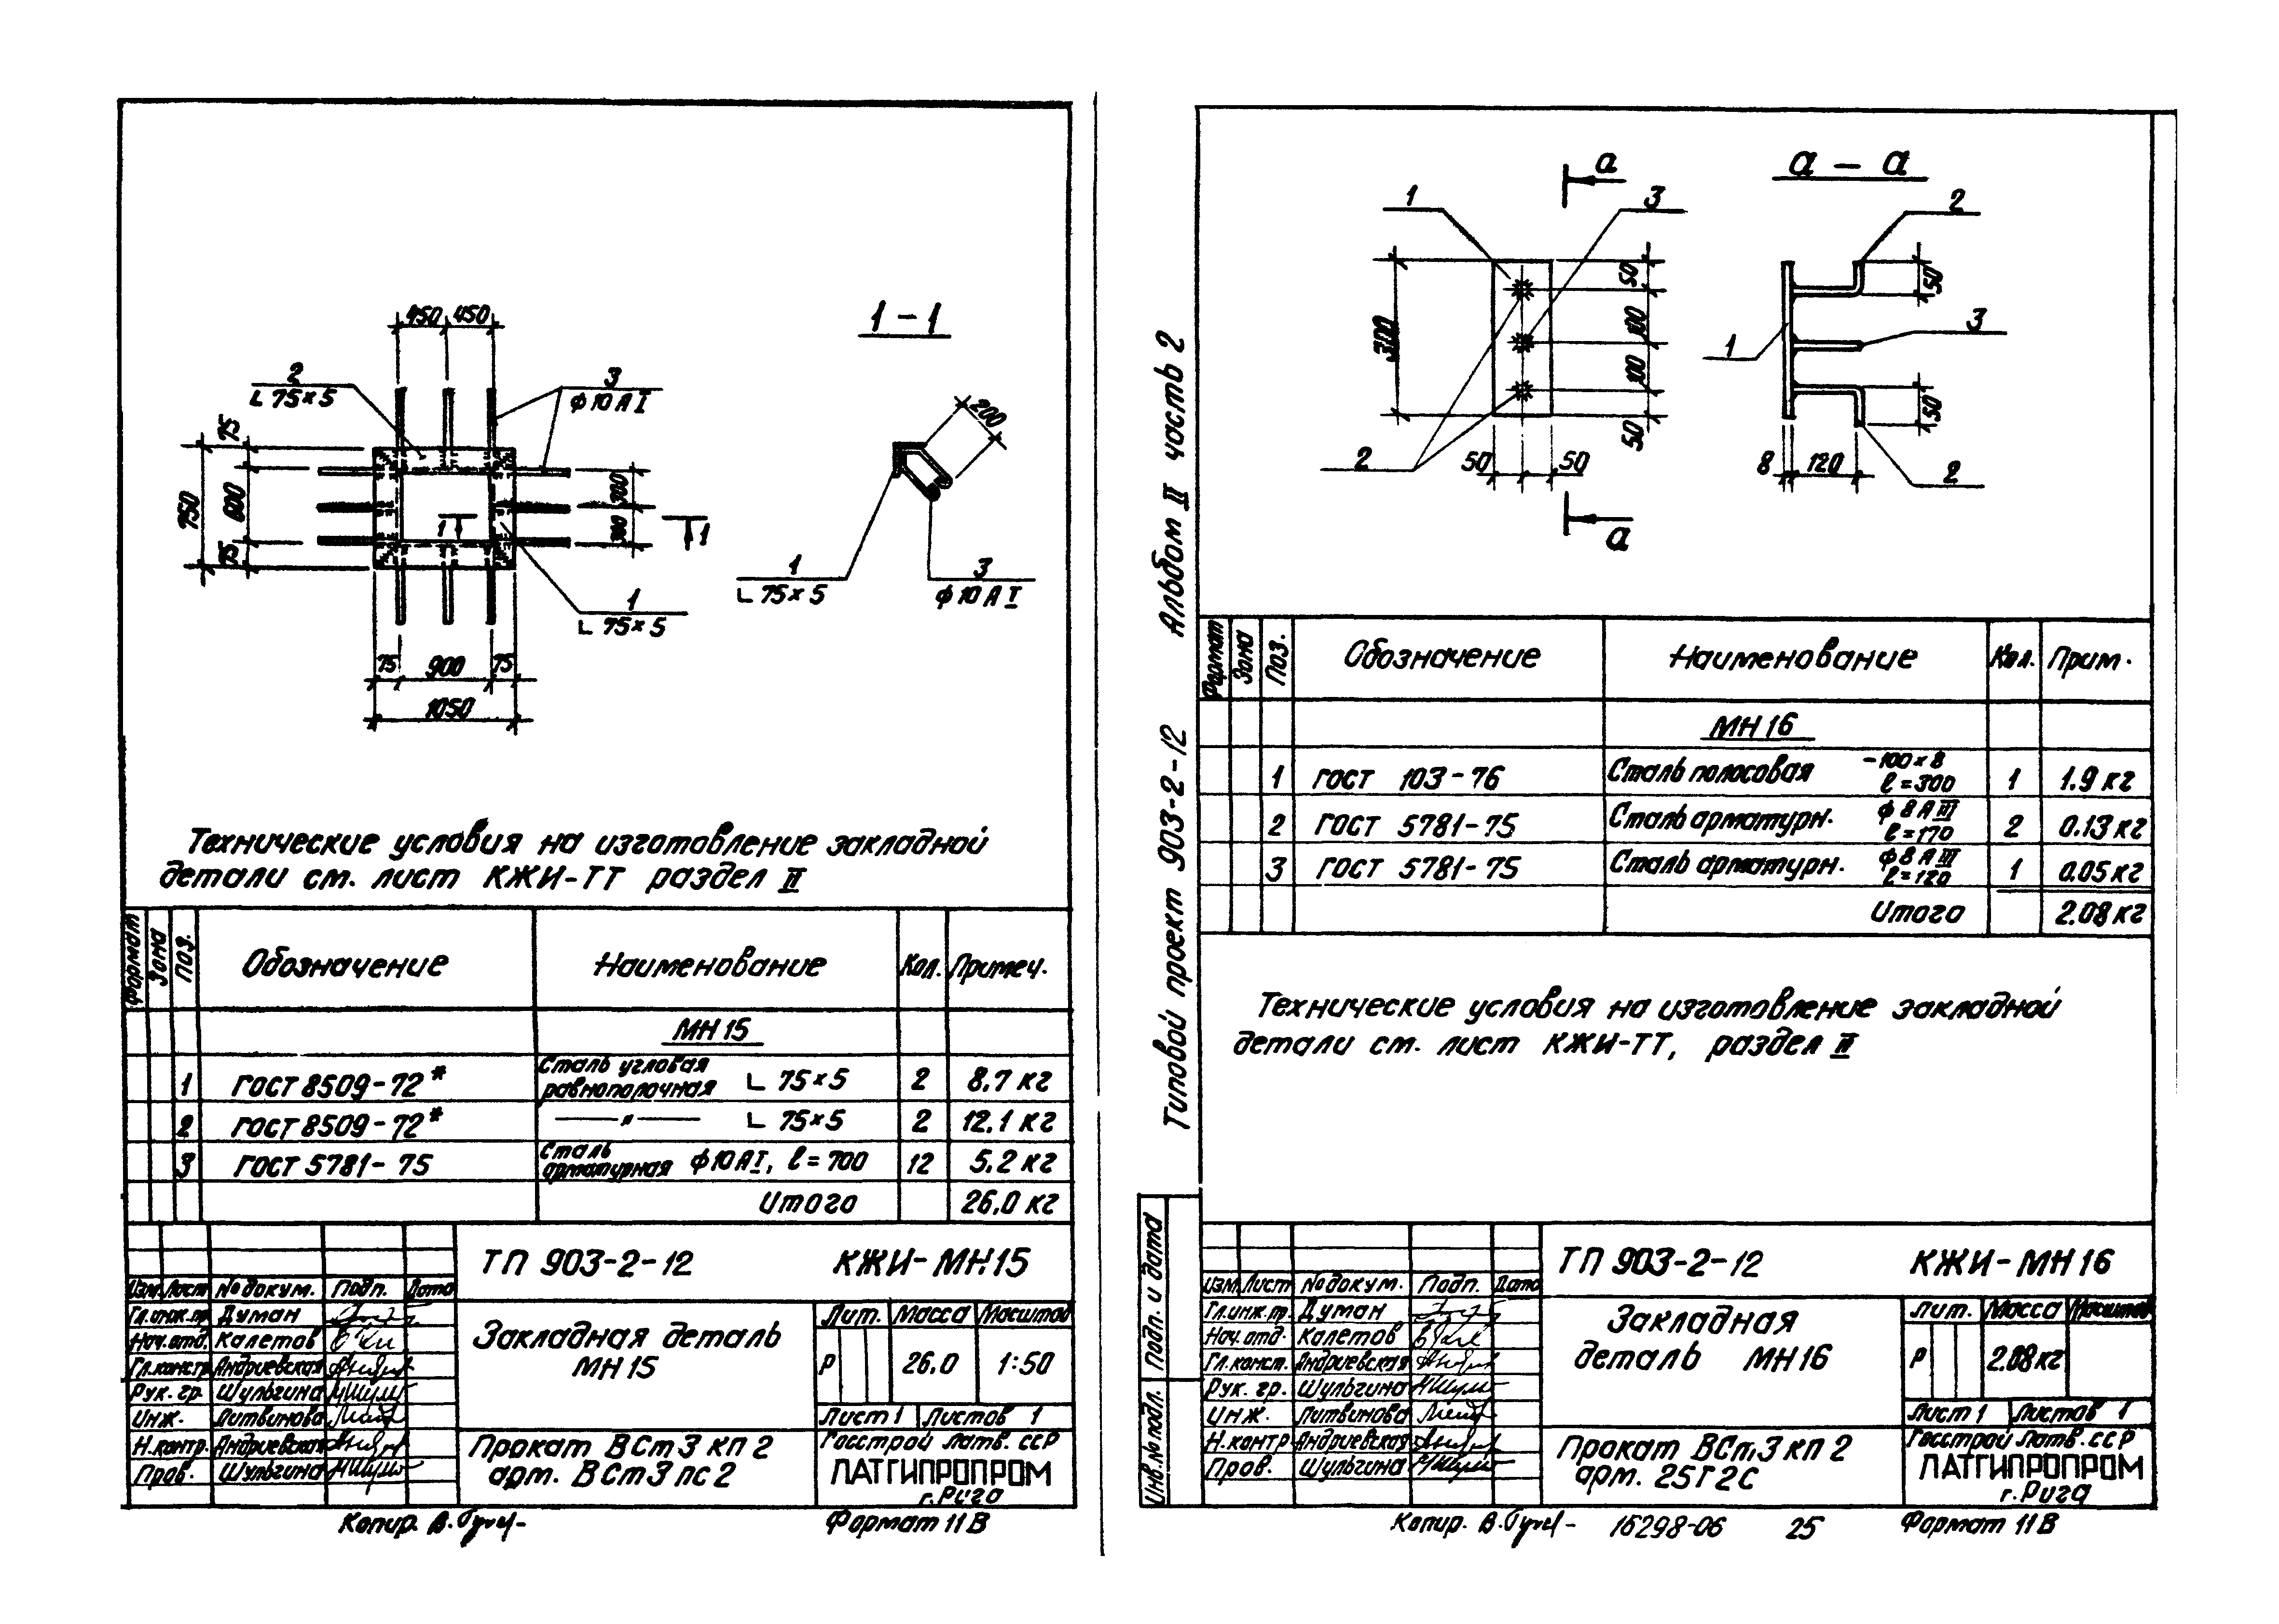 450 450
1-1
2
∟ 75×5
3
ф10АI
75
600
75
750
300
300
1
1
200
1
∟ 75×5
3
ф10АI
1
∟ 75×5
75 900 75
1050
Технические условия на изготовление закладной
детали см. лист КЖИ-ТТ раздел II
Формат Зона Поз. Обозначение Наименование Кол. Примеч.
МН15
1 ГОСТ 8509-72* Сталь угловая равнополочная ∟ 75×5 2 8,7 кг
2 ГОСТ 8509-72* —〃— ∟ 75×5 2 12,1 кг
3 ГОСТ 5781-75 Сталь арматурная ф10АI, ℓ=700 12 5,2 кг
Итого 26,0 кг
ТП 903-2-12 КЖИ-МН15
Изм. Лист № докум. Подп. Дата
Гл.инж.пр. Думан
Нач.отд. Калетов
Гл.констр. Андриевская
Рук. гр. Шульгина
Инж. Литвинова
Н.контр. Андриевская
Пров. Шульгина
Закладная деталь
МН15
Лит. Масса Масштаб
Р 26,0 1:50
Лист 1 Листов 1
Прокат ВСт3кп2
арм. ВСт3пс2
Госстрой Латв. ССР
ЛАТГИПРОПРОМ
г.Рига
Копир.
Формат 11В
Типовой проект 903-2-12 Альбом II часть 2
Инв.№подл. Подп. и дата
а
а - а
1
3
2
300
50
100
100
50
50 50
а
2
50
1
3
50
8 120
2
Формат Зона Поз. Обозначение Наименование Кол. Прим.
МН16
1 ГОСТ 103-76 Сталь полосовая -100×8 ℓ=300 1 1.9 кг
2 ГОСТ 5781-75 Сталь арматурн. ф8АIII ℓ=170 2 0.13 кг
3 ГОСТ 5781-75 Сталь арматурн. ф8АIII ℓ=120 1 0.05 кг
Итого 2.08 кг
Технические условия на изготовление закладной
детали см. лист КЖИ-ТТ, раздел II
ТП 903-2-12 КЖИ-МН16
Изм. Лист № докум. Подп. Дата
Гл.инж.пр. Думан
Нач.отд. Калетов
Гл.конст. Андриевская
Рук. гр. Шульгина
Инж. Литвинова
Н.контр. Андриевская
Пров. Шульгина
Закладная
деталь МН16
Лит. Масса Масштаб
Р 2.08 кг
Лист 1 Листов 1
Прокат ВСт3кп2
арм. 25Г2С
Госстрой Латв. ССР
ЛАТГИПРОПРОМ
г.Рига
Копир.
16298-06 25
Формат 11В